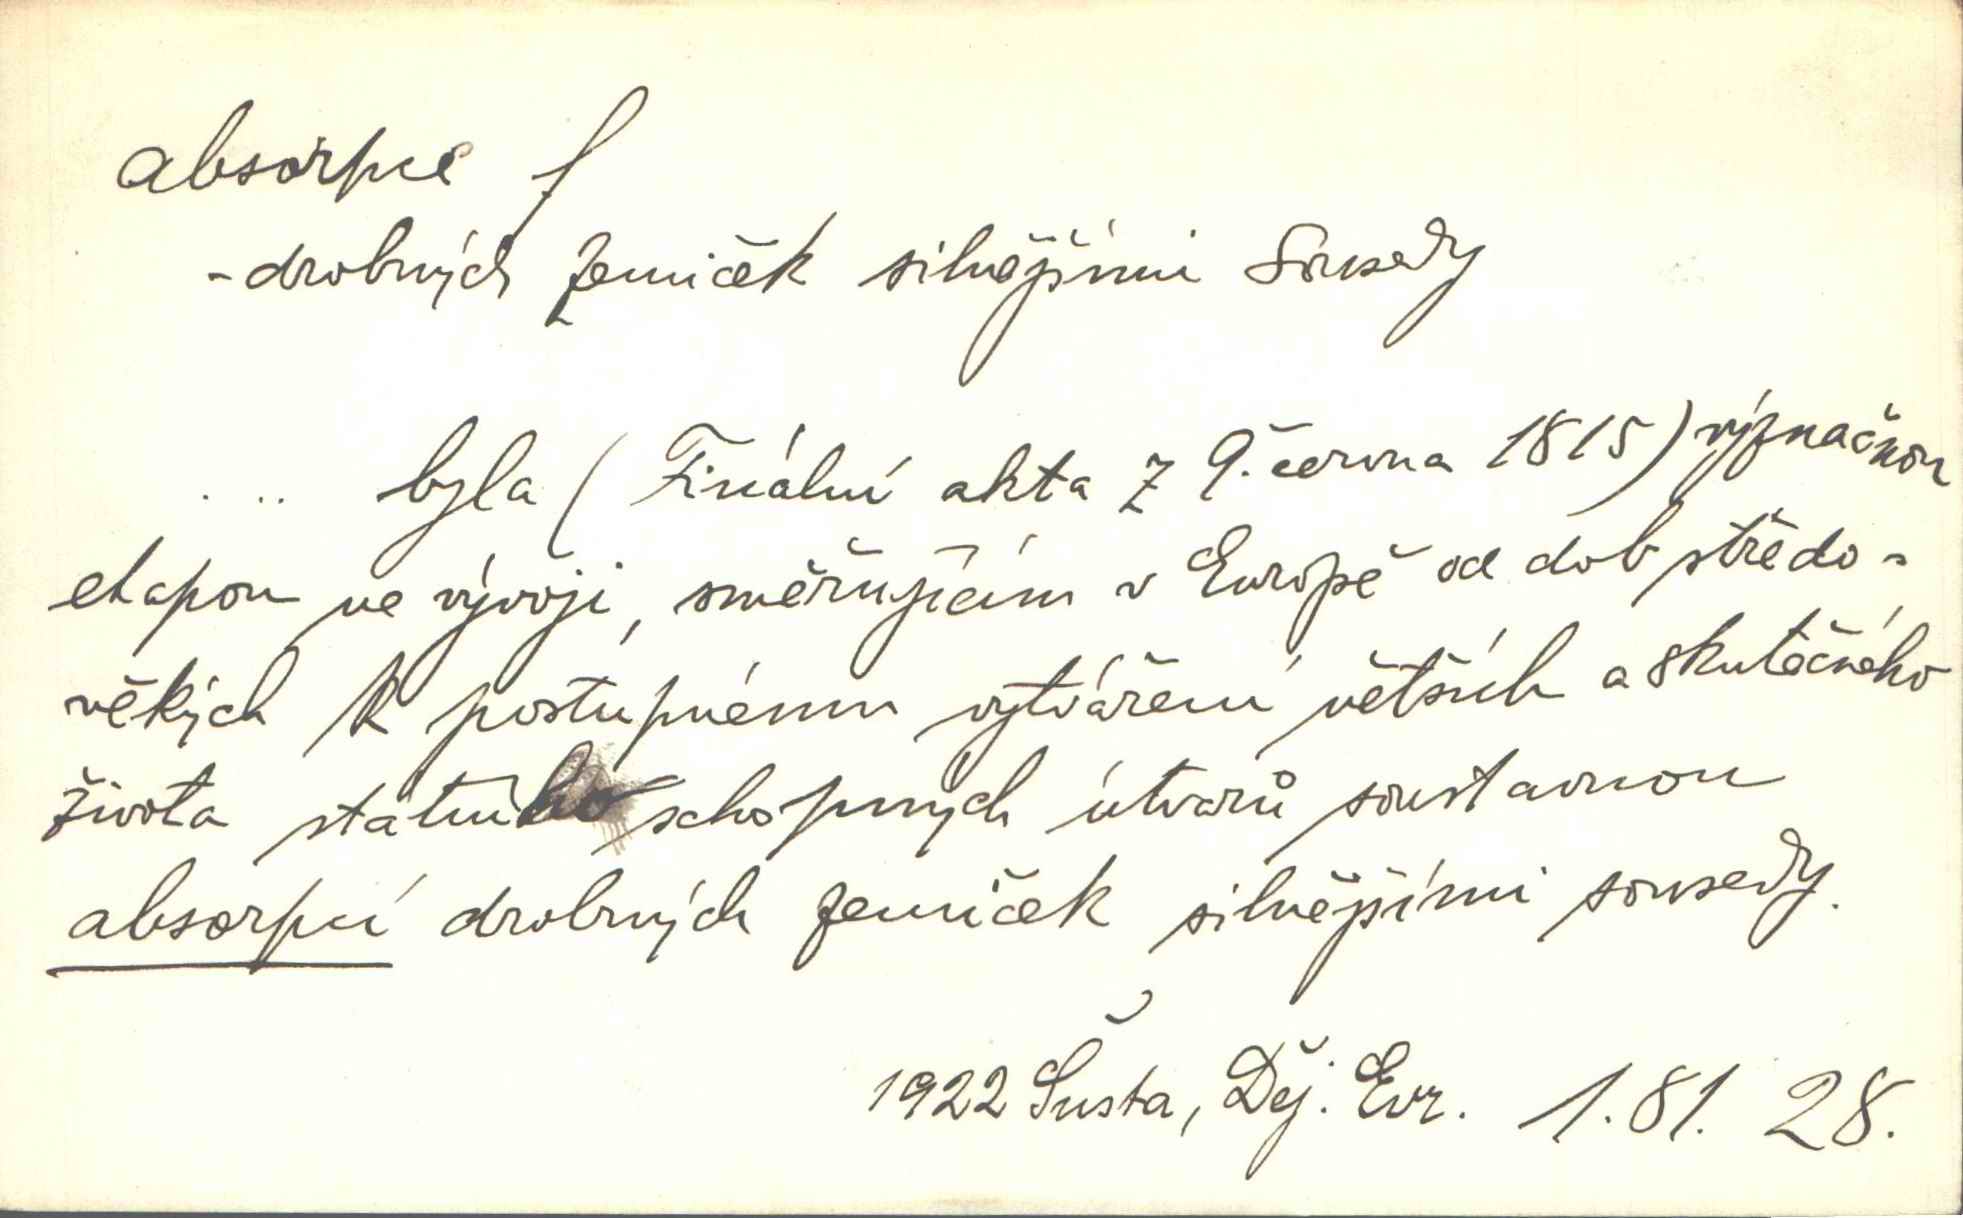 absorpce f
- drobných zemiček silnějšími sousedy
... byla (Finální akta z 9. června 1815) význačnou
etapou ve vývoji, směřujícím v Evropě od dob středo-
věkých k postupnému vytváření větších a skutečného
života státního schopných útvarů soustavnou
absorpcí drobných zemiček silnějšími sousedy.
1922 Šusta, Děj. Evr. 1. 81. 28.